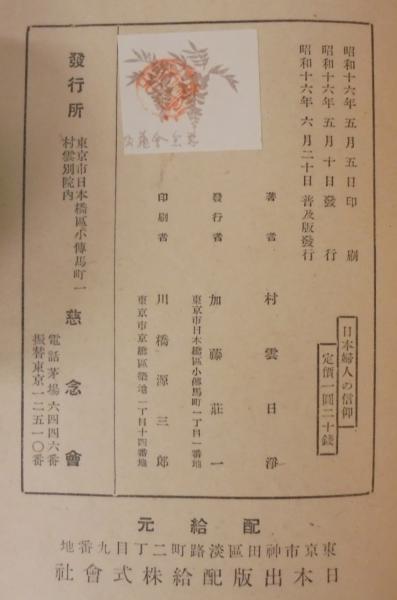 昭和十六年五月五日印刷
昭和十六年五月十日發行
昭和十六年六月二十日普及版發行
日本婦人の信仰
定價一圓二十錢
著者 村雲日淨
發行者 加藤莊一
東京市日本橋區小傳馬町一丁目一番地
印刷者 川橋源三郎
東京市京橋區築地一丁目十四番地
發行所
東京市日本橋區小傳馬町一
村雲別院內
慈念會
電話茅場六四四六番
振替東京一二五一〇番
配給元
東京市神田區淡路町二丁目九番地
日本出版配給株式會社